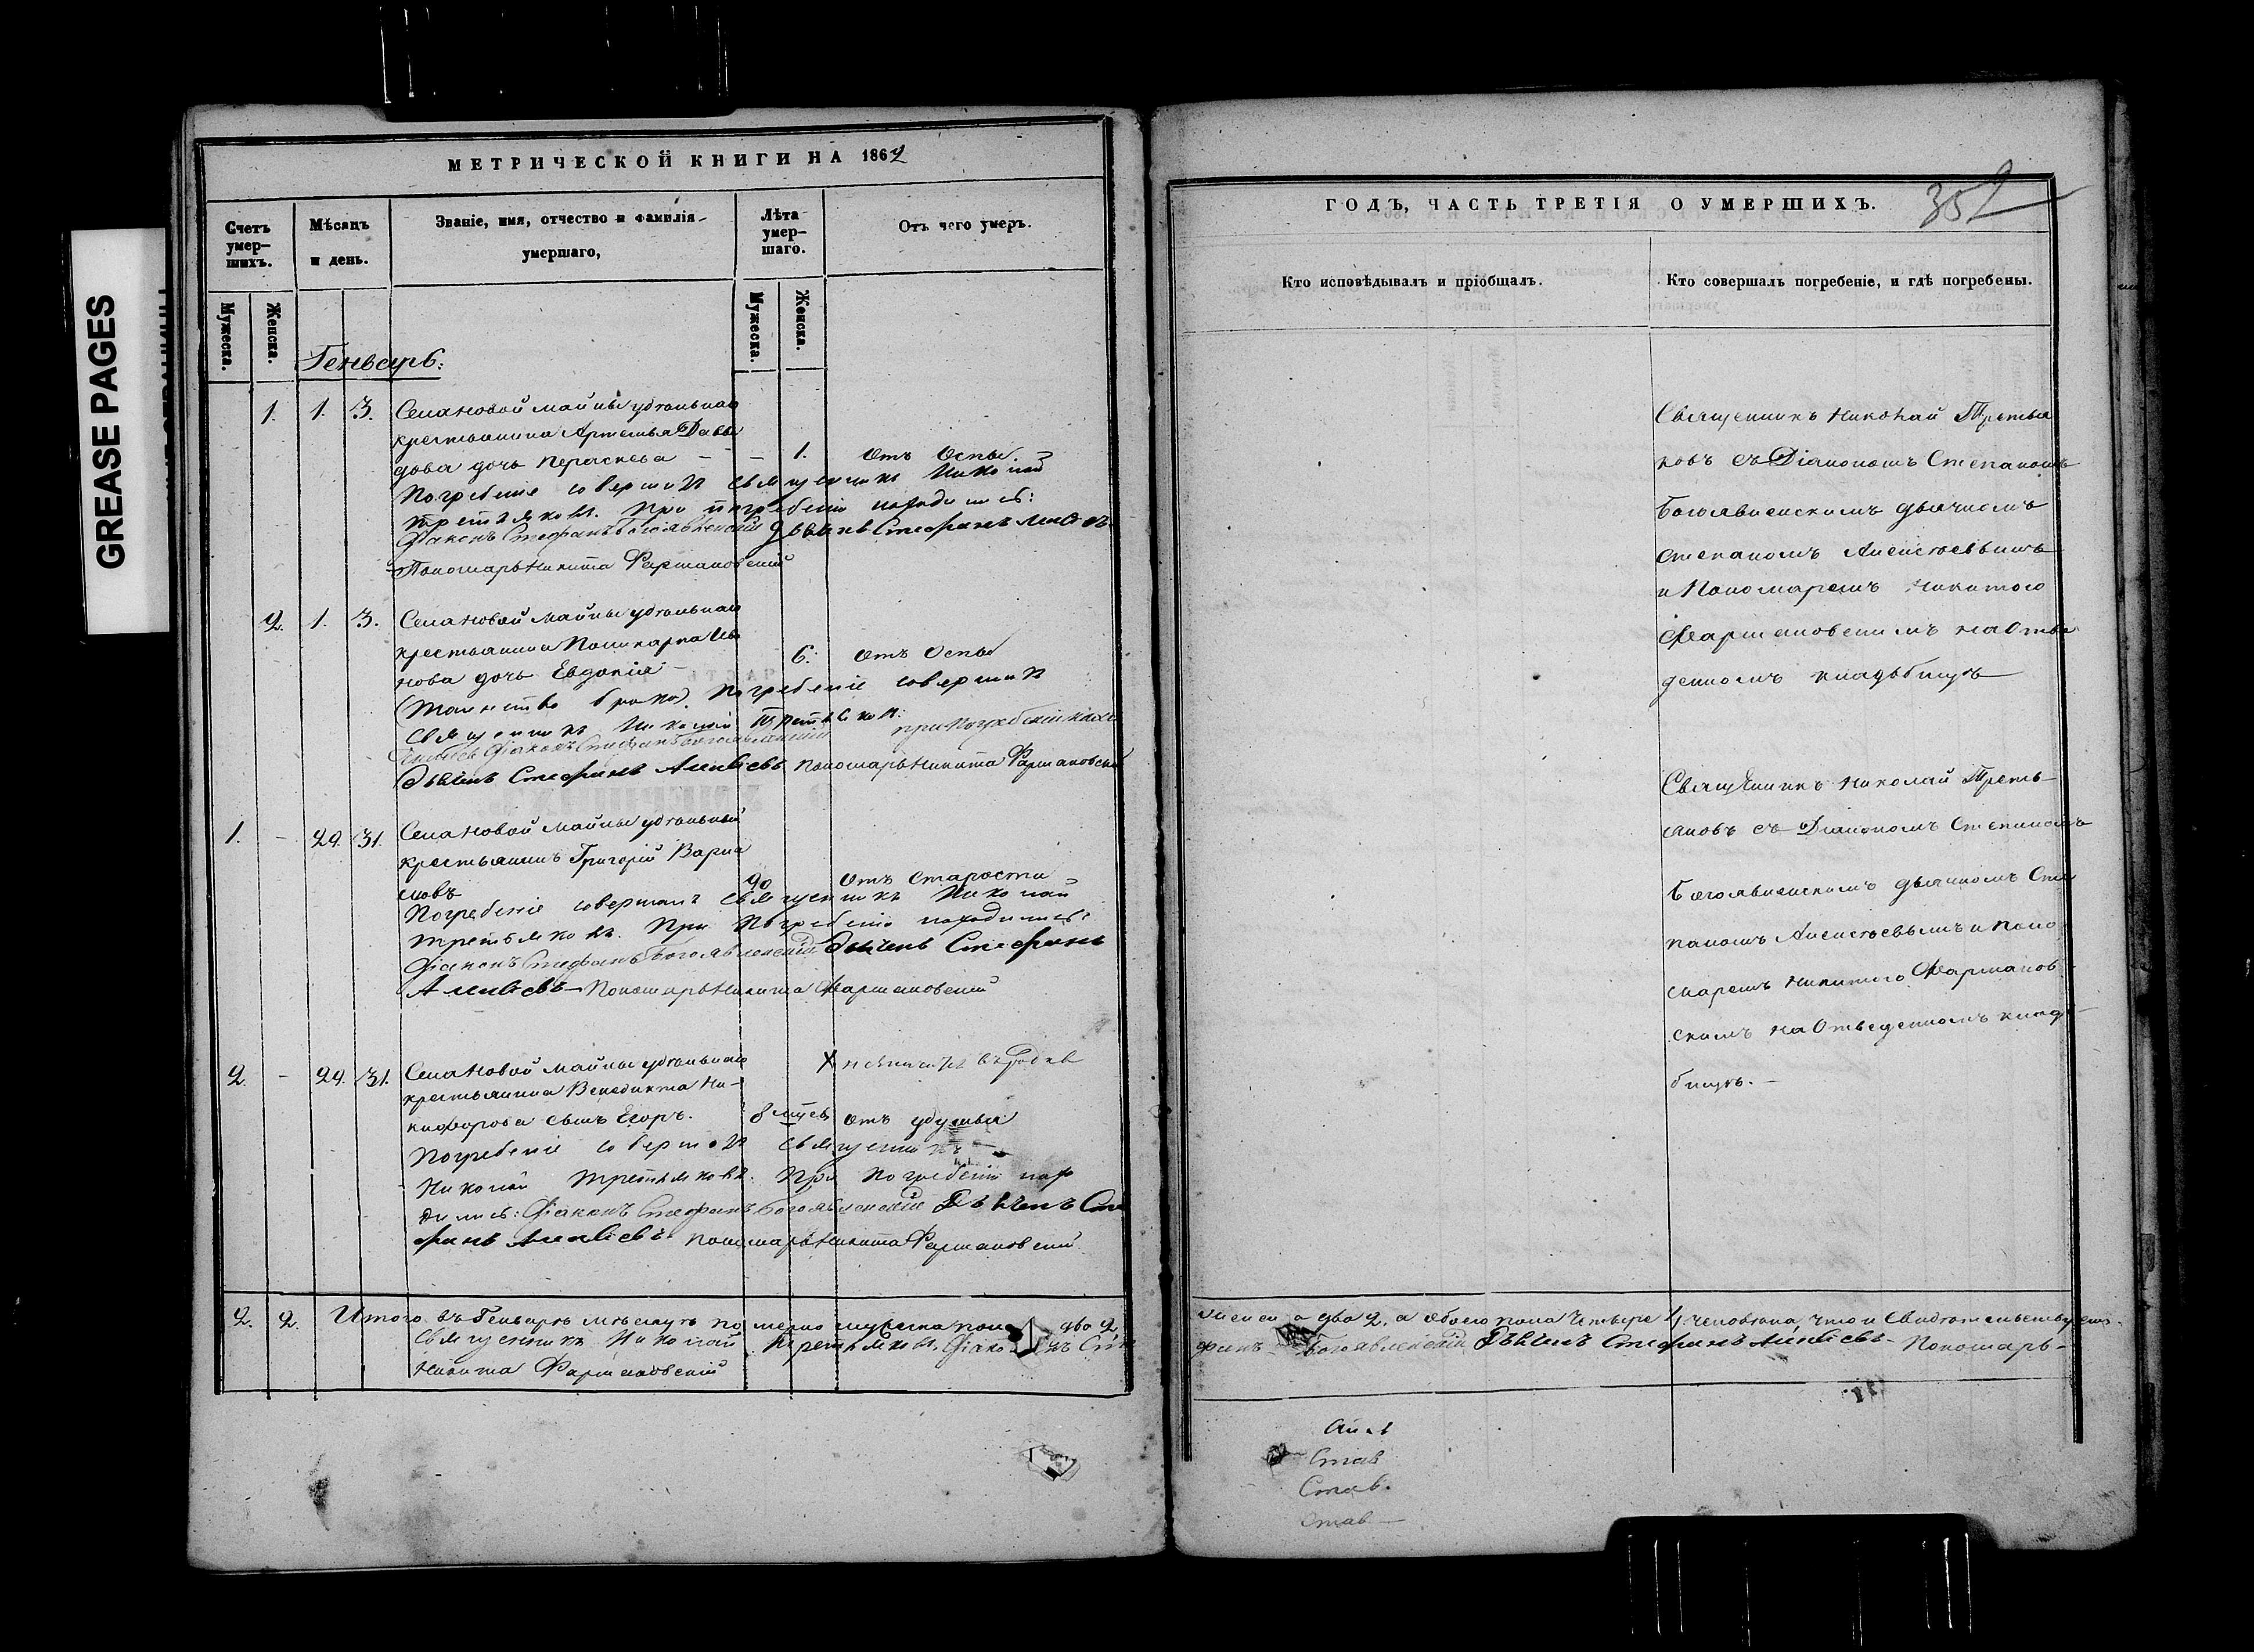 GREASE PAGES
МЕТРИЧЕСКОЙ КНИГИ НА 1862
Счетъ умер-шихъ.
Мѣсяцъ и день.
Званіе, имя, отчество и фамилія умершаго,
Лѣта умер-шаго.
Отъ чего умеръ.
Мужеска.
Женска.
Мужеска.
Женска.
Генварь:
1. 1. 3. Села Новой Майны удѣльнаго
крестьянина Артемья Давы
дова дочь Параскева — — 1. отъ Оспы.
Погребеніе совершилъ Священникъ Николай
Третьяковъ. При погребеніи находились:
Діаконъ Стефанъ Богоявленскій Дьячекъ Стефанъ
Пономарь Никита Фармаковскій
2. 1. 3. Села Новой Майны удѣльнаго
крестьянина Поликарпа Ива
нова дочь Евдокія — 6. отъ Оспы
Погребеніе совершилъ
Священникъ Николай Третьяковъ: при погребеніи
Діаконъ Стефанъ Богоявленскій
Дьячекъ Стефанъ Алексѣевъ Пономарь Никита Фармаковскій
1. — 29. 31. Села Новой Майны удѣльный
крестьянинъ Григорій Варла
мовъ 90 отъ старости
Погребеніе совершалъ Священникъ Николай
Третьяковъ. При Погребеніи находились:
Діаконъ Стефанъ Богоявленскій Дьячекъ Стефанъ
Алексѣевъ — Пономарь Никита Фармаковскій
2. — 29. 31. Села Новой Майны удѣльнаго
крестьянина Венедикта Ни-
кифорова сынъ Егоръ. 8 мцсъ отъ удушья
Погребеніе совершилъ Священникъ —
Николай Третьяковъ. При погребеніи нахо
дились: Діаконъ Стефанъ Богоявленскій Дьячекъ Сте
фанъ Алексѣевъ Пономарь Никита Фармаковскій
2. 2. Итого въ Генварѣ мѣсяцѣ померло мужеска пола два 2,
Священникъ Николай Третьяковъ. Діаконъ Сте
Никита Фармаковскій
ГОДЪ, ЧАСТЬ ТРЕТІЯ О УМЕРШИХЪ.
352
Кто исповѣдывалъ и пріобщалъ.
Кто совершалъ погребеніе, и гдѣ погребены.
Священникъ Николай Третья
ковъ съ Діакономъ Степаномъ
Богоявленскимъ дьячкомъ
Степаномъ Алексѣевымъ
и Пономаремъ Никитою
Фармаковскимъ на Отве
денномъ кладбищѣ
Священникъ Николай Треть
яковъ съ Діакономъ Степаномъ
Богоявленскимъ дьячкомъ Сте
паномъ Алексѣевымъ и Поно
маремъ Никитою Фармаков
скимъ на Отведенномъ клад
бищѣ. —
женска два 2, а обоего пола четыре 4 человѣка, что и свидѣтельствуемъ.
фанъ Богоявленскій Дьячекъ Стефанъ Алексѣевъ — Пономарь —
Став
Став.
Став —